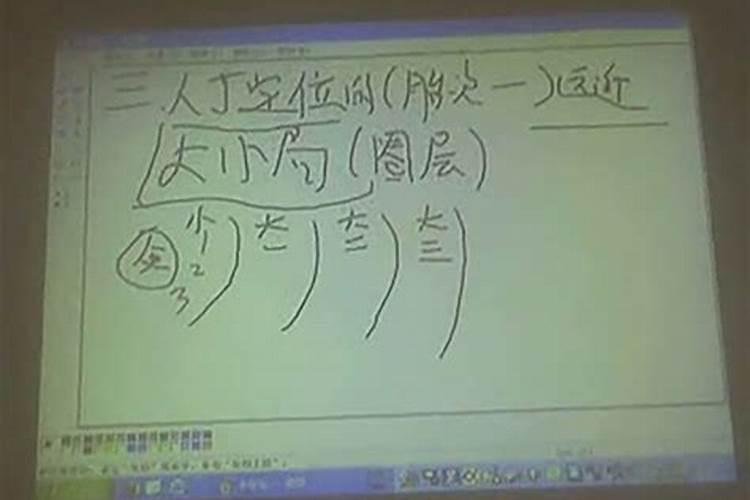 三 人丁定位的(胎次一)远近
大小局(圈层)
穴 小1 2 3 ) 大一 ) 大二 ) 大三 )